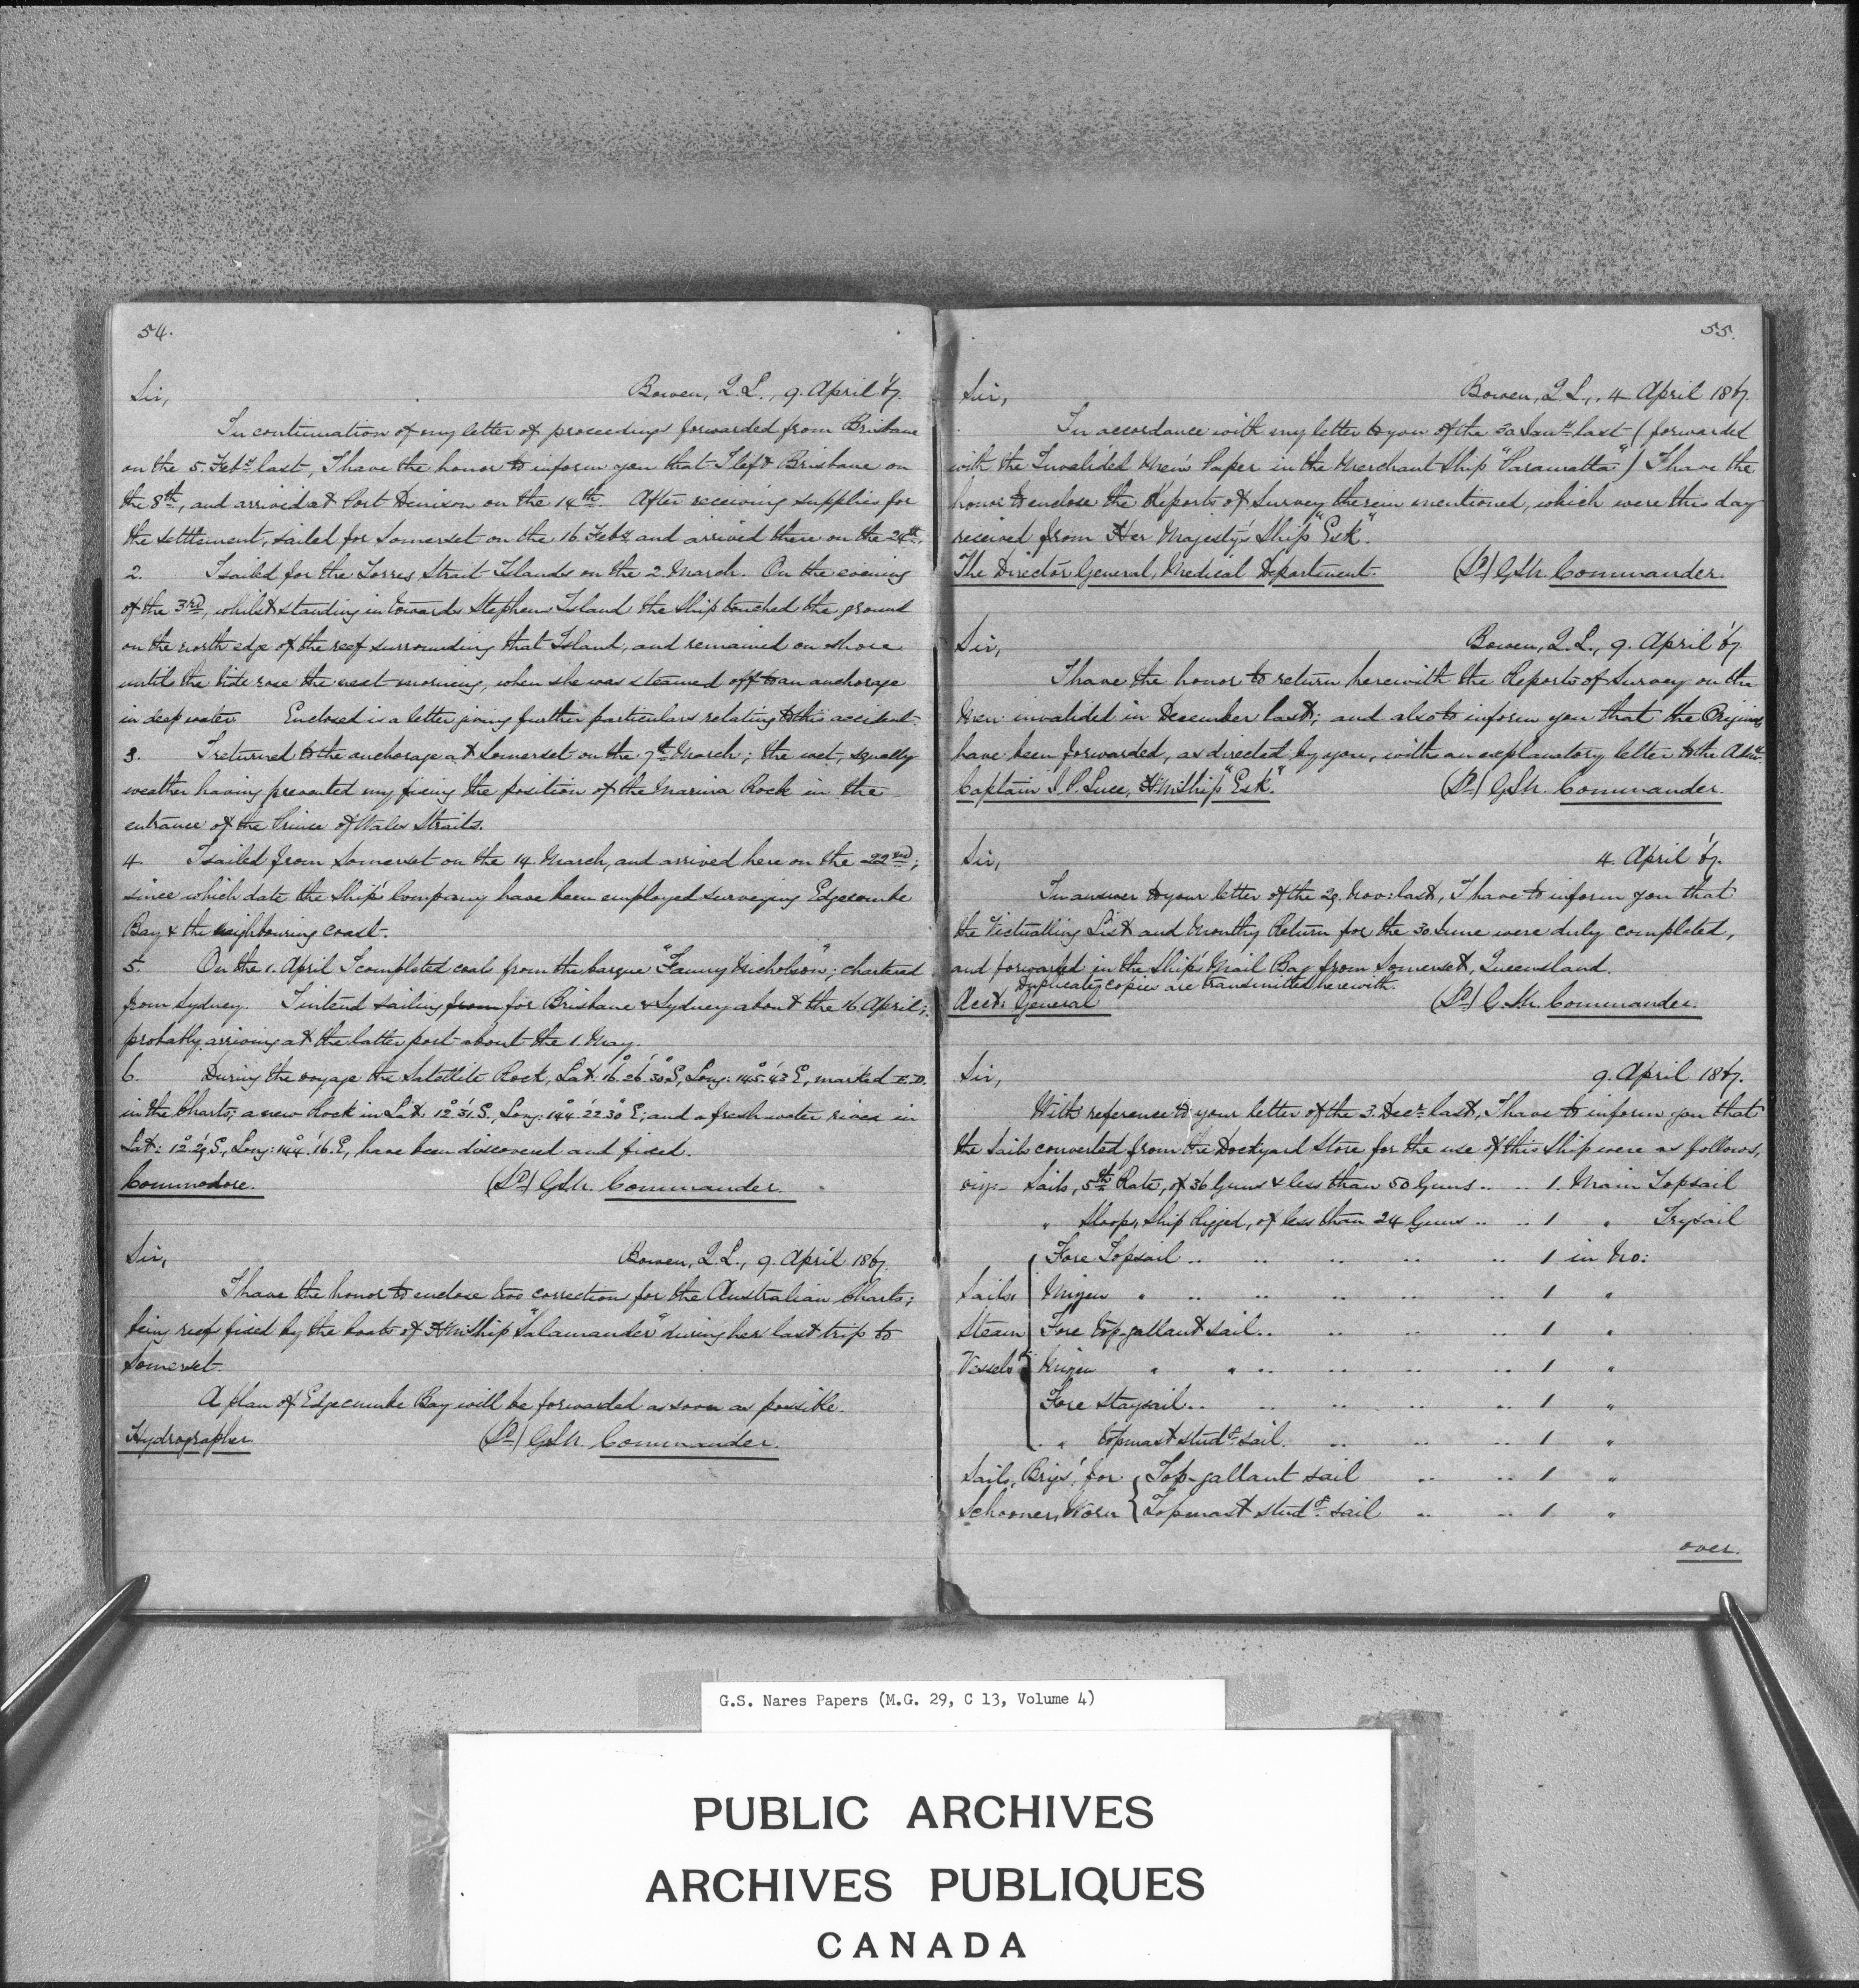 54.
Sir, Bowen, Q.L., 9. April '67.
In continuation of my letter of proceedings forwarded from Brisbane
on the 5. Feby last, I have the honor to inform you that I left Brisbane on
the 8th, and arrived at Port Denison on the 14th. After receiving supplies for
the settlement, sailed for Somerset on the 16 Feby and arrived there on the 24th.
2. I sailed for the Torres Strait Islands on the 2. March. On the evening
of the 3rd, whilst standing in towards Stephens Island the Ship touched the ground
on the north edge of the reef surrounding that Island, and remained on shore
until the tide rose the next morning, when she was steamed off to an anchorage
in deep water. Enclosed is a letter giving further particulars relating to this accident.
3. I returned to the anchorage at Somerset on the 7th March; the wet, squally
weather having prevented my fixing the position of the Marina Rock in the
entrance of the Prince of Wales Straits.
4 I sailed from Somerset on the 14. March, and arrived here on the 22nd;
since which date the Ship's Company have been employed surveying Edgecumbe
Bay & the neighbouring coast.
5. On the 1. April I completed coals from the barque "Fanny Nicholson"; chartered
from Sydney. I intend sailing from for Brisbane & Sydney about the 16. April;
probably arriving at the latter port about the 1. May.
6. During the voyage the Satellite Rock, Lat: 16° 26' 30" S, Long: 145° 43' E, marked E.D.
in the Charts; a new Rock in Lat: 12° 31' S., Long: 144° 22' 30" E; and a fresh water river in
Lat: 12° 29' S, Long: 144° 16' E, have been discovered and fixed.
Commodore. (Sd) GSN. Commander.
Sir, Bowen, Q.L., 9. April 1867.
I have the honor to enclose two correction for the Australian Charts;
being reefs fixed by the boats of H.M. Ship "Salamander" during her last trip to
Somerset.
A plan of Edgecumbe Bay will be forwarded as soon as possible.
Hydrographer (Sd) GSN. Commander.
55.
Sir, Bowen, Q.L., 4 April 1867.
In accordance with my letter to you of the 30 Jany last (forwarded
with the Invalided Men's Paper in the Merchant Ship "Paramatta") I have the
honor to enclose the Reports of Survey therein mentioned, which were this day
received from Her Majesty's Ship "Esk".
The Director General, Medical Department. (Sd) GSN. Commander.
Sir, Bowen, Q.L., 9. April '67.
I have the honor to return herewith the Reports of Survey on the
Men invalided in December last; and also to inform you that the Originals
have been forwarded, as directed by you, with an explanatory letter to the Admy.
Captain J. P. Luce, H.M. Ship "Esk". (Sd) GSN. Commander.
Sir, 4. April '67.
In answer to your letter of the 29. Nov: last, I have to inform you that
the Victualling List and Monthly Return for the 30 June were duly completed,
and forwarded in the Ship's Mail Bag from Somerset, Queensland.
Duplicate copies are transmitted herewith.
Acct. General (Sd) G.SN. Commander.
Sir, 9. April 1867.
With reference to your letter of the 3. Decr last, I have to inform you that
the Sails converted from the Dockyard Store for the use of this Ship were as follows,
viz:- Sails, 5th Rate, of 36 Guns & less than 50 Guns .. .. 1. Main Topsail
" Sloops, Ship Rigged, of less than 24 Guns .. .. 1 " Trysail
Fore Topsail .. .. .. .. .. 1 in No:
Sails, Mizen " .. .. .. .. .. 1 "
Steam Fore top-gallant sail .. .. .. .. 1 "
Vessels Mizen " " .. .. .. .. 1 "
Fore Staysail .. .. .. .. .. 1 "
" topmast studg sail. .. .. .. 1 "
Sails, Brigs', for Top-gallant sail .. .. 1 "
Schooners, Worn Topmast studg sail .. .. 1 "
over.
G.S. Nares Papers (M.G. 29, C 13, Volume 4)
PUBLIC ARCHIVES
ARCHIVES PUBLIQUES
CANADA